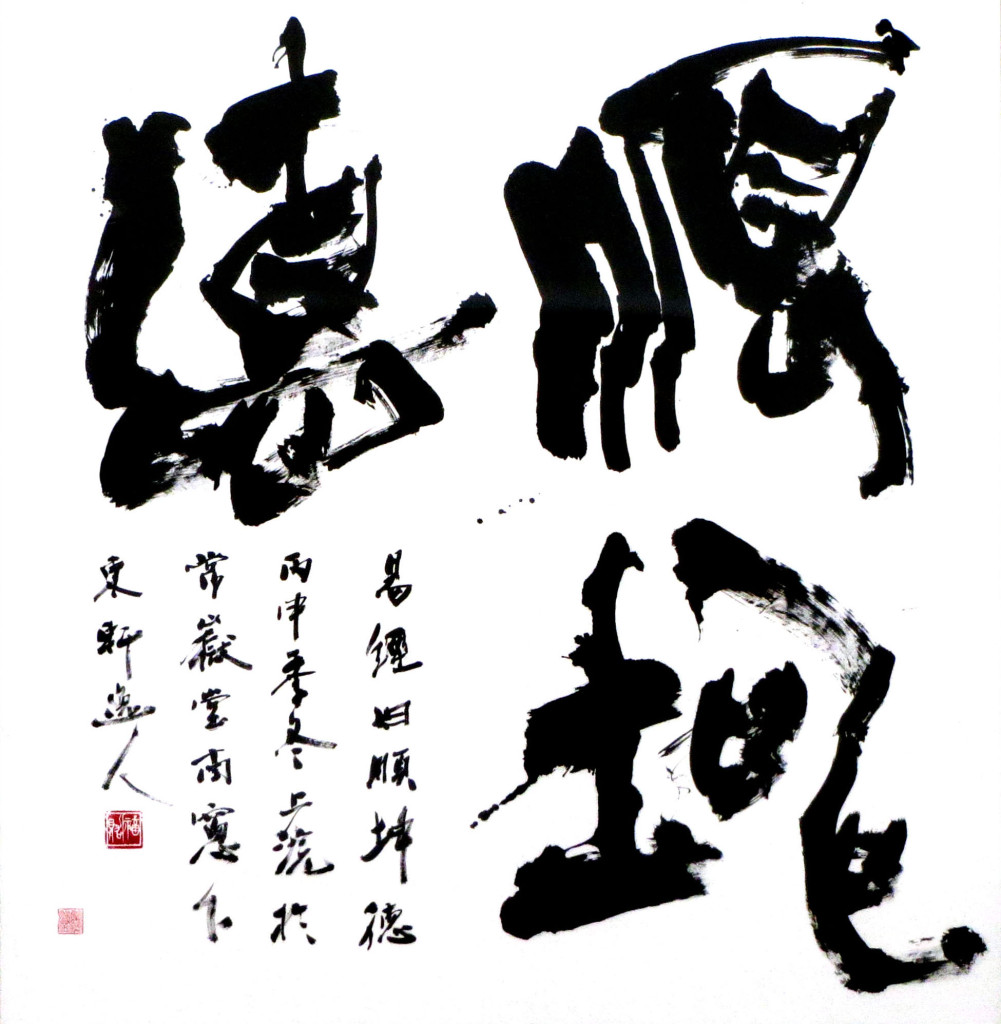 順坤
德
易經曰順坤德
丙申季冬上浣於
常嶽堂南窓下
東軒逸人